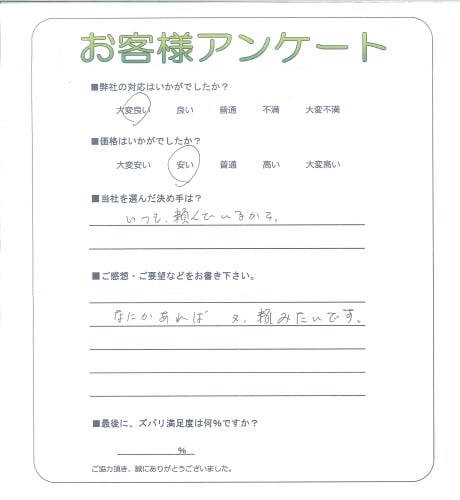 お客様アンケート
■弊社の対応はいかがでしたか？
大変良い 良い 普通 不満 大変不満
■価格はいかがでしたか？
大変安い 安い 普通 高い 大変高い
■当社を選んだ決め手は？
いつも、頼んでいるから、
■ご感想・ご要望などをお書き下さい。
なにかあれば 又、頼みたいです。
■最後に、ズバリ満足度は何%ですか？
%
ご協力頂き、誠にありがとうございました。